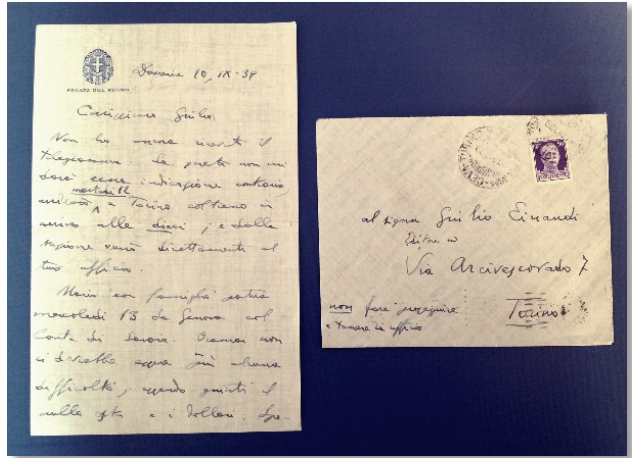 SENATO DEL REGNO
10, IX. 39
Carissimo Giulio,
Non ho ancora ricevuto il
telegramma. Se questo non mi
darà indicazione contraria,
martedì 12
a Torino col treno in
arrivo alle dieci; e dalla
stazione verrò direttamente al
tuo ufficio.
Mario con famiglia
mercoledì 13 da Genova col
Conte di Savoia. Oramai non
ci dovrebbe essere più alcuna
difficoltà, essendo giunti il
nulla osta e i dollari. Spe
al signor Giulio Einaudi
Editore
Via Arcivescovado 7
Torino
non fare proseguire
e tenere in ufficio